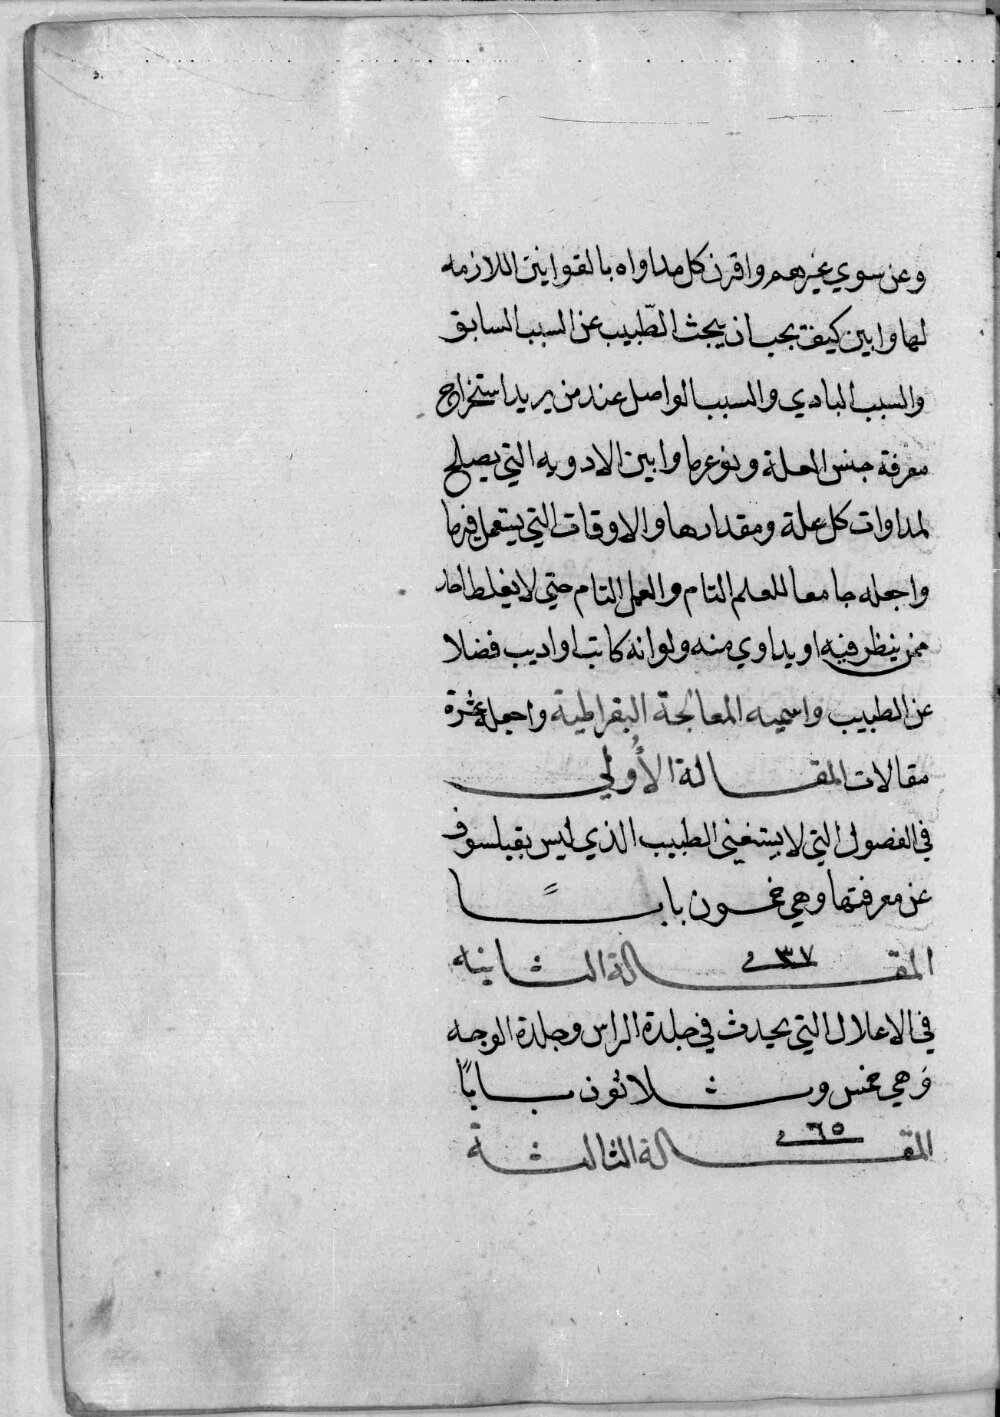 وعن سوي غيرهم واقرن كل مداواه بالقوانين اللازمه
لها وابين كيف يجب ان يبحث الطّبيب عن السبب السابق
والسبب البادي والسبب الواصل عند من يريد استخراج
معرفة جنس العلة ونوعها وابين الادويه التي يصلح
لمداوات كل علة ومقدارها والاوقات التي يستعمل فيها
واجعله جامعا للعلم التام والعمل التام حتي لا يغلط احد
ممن ينظر فيه او يداوي منه ولو انه كاتب او اديب فضلا
عن الطبيب واسميه المعالجة البقراطية واجعله عشرة
مقالات المقالة الأُولي
في الفصول التي لا يستغني الطبيب الذي ليس بفيلسوف
عن معرفتها وهي خمسون بابًا
المقالة الثانيه
٣٧
في الاعلال التي يحدث في جلدة الراس وجلدة الوجه
وَهي خمس وثلاثون بابًا
المقالة الثالثة
٦٥